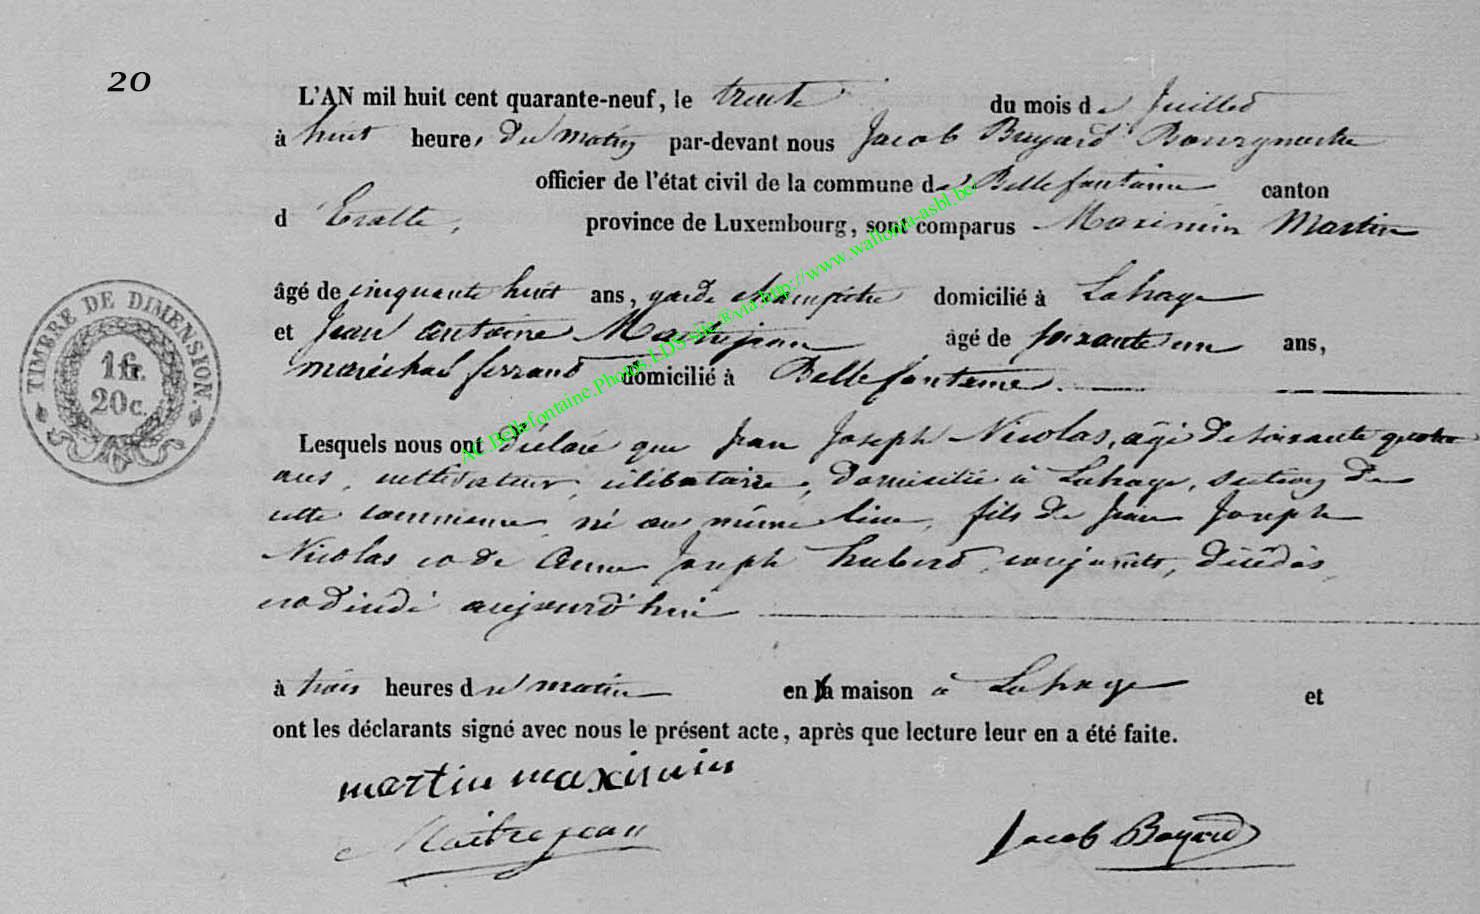 20
L'AN mil huit cent quarante-neuf, le trente du mois de Juillet
à huit heures du matin par-devant nous Jacob Bayard Bourgmestre
officier de l'état civil de la commune de Bellefontaine canton
d'Etalle, province de Luxembourg, sont comparus Maximin Martin
âgé de cinquante huit ans, garde champêtre domicilié à Lahage
et Jean Antoine Maitrejean âgé de soixante un ans,
maréchal ferrand domicilié à Bellefontaine.
Lesquels nous ont déclaré que Jean Joseph Nicolas, âgé de soixante quatre
ans, cultivateur, célibataire, domicilié à Lahage, section de
cette commune, né au même lieu, fils de Jean Joseph
Nicolas et de Anne Joseph Hubert, conjoints, décédés,
est décédé aujourd'hui
à trois heures du matin en la maison à Lahage et
ont les déclarants signé avec nous le présent acte, après que lecture leur en a été faite.
martin maximin
Maitrejean
Jacob Bayard
TIMBRE DE DIMENSION.
1 fr.
20 c.
AE.Bellefontaine.Photos LDS site ®via http://www.wallonia-asbl.be/